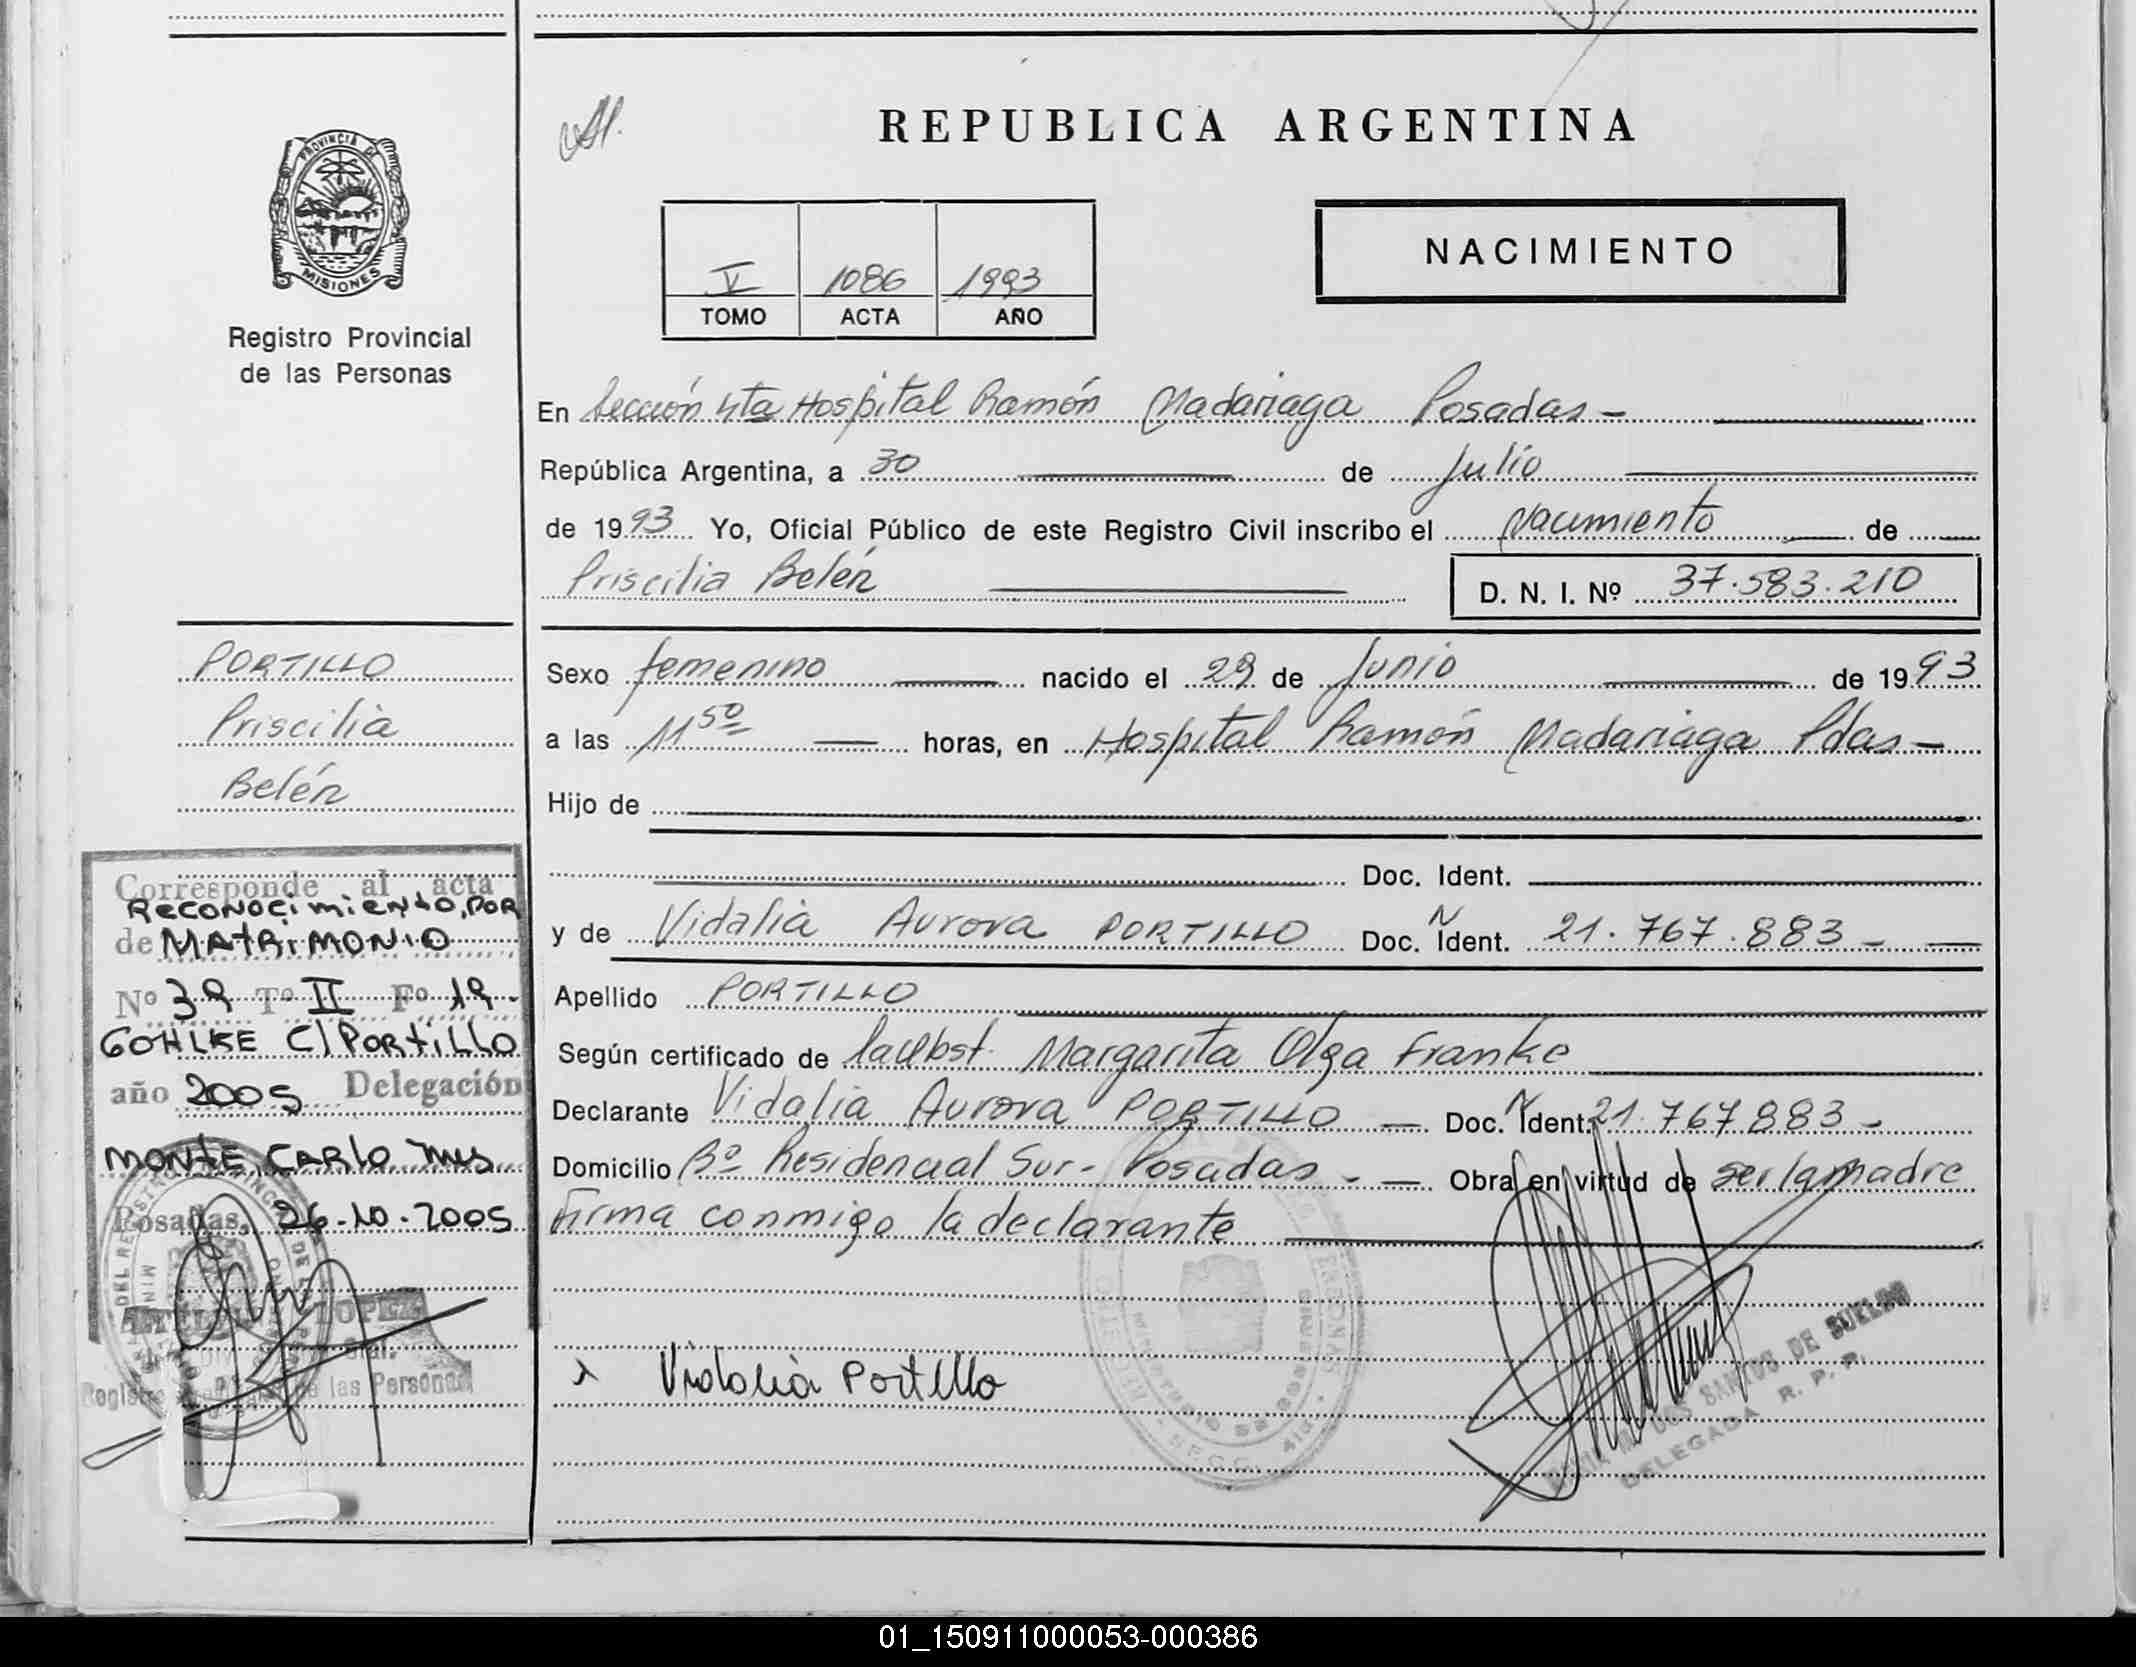 REPUBLICA ARGENTINA
PROVINCIA DE
MISIONES
Registro Provincial
de las Personas
V 1086 1993
TOMO ACTA AÑO
NACIMIENTO
En Sección 4ta Hospital Ramón Madariaga Posadas -
República Argentina, a 30 de Julio
de 1993 Yo, Oficial Público de este Registro Civil inscribo el Nacimiento de
Priscilia Belén
D. N. I. Nº 37.583.210
PORTILLO
Priscilia
Belén
Sexo femenino nacido el 29 de Junio de 1993
a las 11 50 horas, en Hospital Ramón Madariaga Pdas -
Hijo de
Doc. Ident.
y de Vidalia Aurora PORTILLO Doc. N Ident. 21.767.883 -
Apellido PORTILLO
Según certificado de Margarita Olga Franke
Declarante Vidalia Aurora PORTILLO - Doc. N Ident. 21.767883 -
Domicilio Bº Residencial Sur - Posadas - Obra en virtud de ser la madre
Firma conmigo la declarante
Vidalia Portillo
DOS SANTOS DE
DELEGADA R. P. P.
Corresponde al acta
Reconocimiento, por
de MATRIMONIO
Nº 39 Tº II Fº 19 -
GOHLKE C/ PORTILLO
año 2005 Delegación
MONTE CARLO Mns
Posadas, 26-10-2005
LOPEZ
Registro de las Personas
01_150911000053-000386